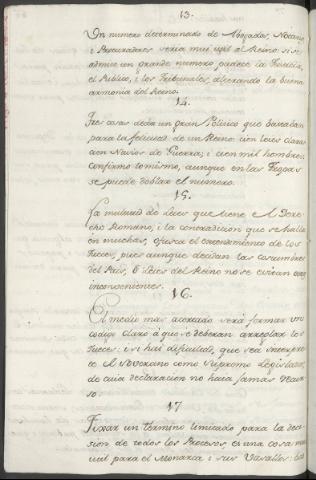 13.
Un numero determinado de Abogados, Notarios,
i Procuradores sería mui util al Reino: si se
admite un grande numero padece la Justicia,
el Publico, i los Tribunales, alterando la buena
armonia del Reino.
14.
Tres cosas decia un gran Politico que bastaban
para la felicidad de un Reino: cien leies claras,
cien Navios de Guerra, i cien mil hombres:
confirmo lo mismo, aunque en las Tropas
se puede doblar el numero.
15.
La multitud de Leies que tiene el Dere-
cho Romano, i la contradicion que se halla
en muchas, ofusca el entendimiento de los
Jueces, pues aunque decidan las costumbres
del País, ò Leies del Reino no se evitan
inconvenientes.
16.
El medio mas acertado será formar un
codigo claro á que se deberan arreglar los
Jueces: i si hai dificultad, que sea interpre-
te el Soverano como Supremo Legislador,
de cuia declaracion no haia jamas recur-
so.
17
Fixar un termino limitado para la deci-
sion de todos los Procesos, es una cosa mui
util para el Monarca i sus Vasallos: